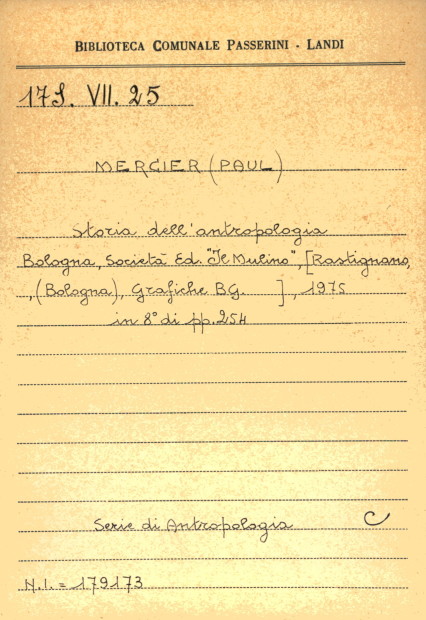 BIBLIOTECA COMUNALE PASSERINI - LANDI
17S. VII. 25
MERCIER (PAUL)
Storia dell'antropologia
Bologna, Società Ed. "Il Mulino", [Rastignano,
(Bologna), Grafiche BG. ], 1975
in 8° di pp. 254
Serie di Antropologia C
N.I. = 179173